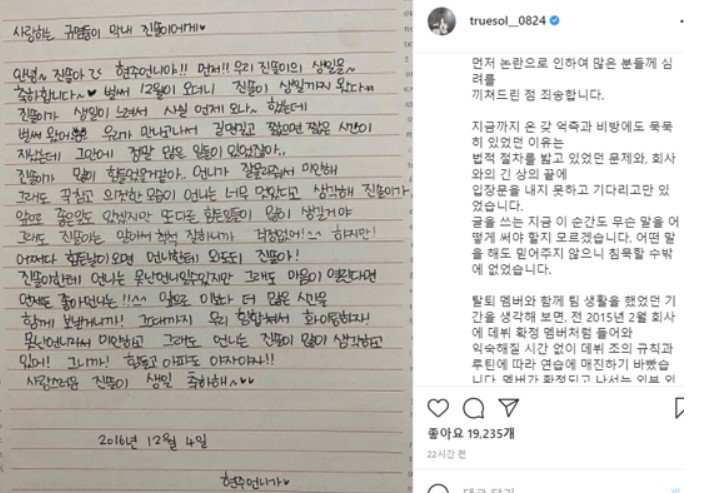 사랑하는 귀염둥이 막내 진똘이에게♥
안녕~ 진똘아 현주언니야!! 먼저!! 우리 진똘이의 생일을~
축하합니다~♥ 벌써 12월이 오더니 진똘이 생일까지 왔다
진똘이가 생일이 느려서 사실 언제 오나~ 했는데
벌써 왔어 우리가 만나고나서 길면길고 짧으면 짧은 시간이
지났는데 그안에 정말 많은 일들이 있었잖아..
진똘이가 많이 힘들었을거같아.. 언니가 잘몰라줘서 미안해
그래도 꾹참고 의젓한 모습이 언니는 너무 멋있다고 생각해 진똘이가
앞으로 좋은일도 있겠지만 또다른 힘든일들이 많이 생길거야
그래도 진똘이는 알아서 척척 잘하니까 걱정없어!^^ 하지만!
어쩌다 힘든날이오면 언니한테 와도돼 진똘아!
진똘이한테 언니는 못난언니일수있지만 그래도 마음이 열린다면
언제든 좋아언니는!!^^ 앞으로 이보다 더 많은 시간을
함께 보낼거니까! 그때까지 우리 힘합쳐서 화이팅하자!
못난언니라서 미안하고 그래도 언니는 진똘이 많이 생각하고
있어! 그니까! 힘들고 아파도 이자야자!!
사랑스러운 진똘이 생일 축하해~♥♥
2016년 12월 4일
현주언니가♥
truesol__0824
먼저 논란으로 인하여 많은 분들께 심
려를
끼쳐드린 점 죄송합니다.
지금까지 온 갖 억측과 비방에도 묵묵
히 있었던 이유는
법적 절차를 밟고 있었던 문제와, 회사
와의 긴 상의 끝에
입장문을 내지 못하고 기다리고만 있
었습니다.
글을 쓰는 지금 이 순간도 무슨 말을 어
떻게 써야 할지 모르겠습니다. 어떤 말
을 해도 믿어주지 않으니 침묵할 수밖
에 없었습니다.
탈퇴 멤버와 함께 팀 생활을 했었던 기
간을 생각해 보면, 전 2015년 2월 회사
에 데뷔 확정 멤버처럼 들어와
익숙해질 시간 없이 데뷔 조의 규칙과
루틴에 따라 연습에 매진하기 바빴습
니다. 멤버가 확정되고 나서는 외부 인
좋아요 19,235개
22시간 전
댓글 달기